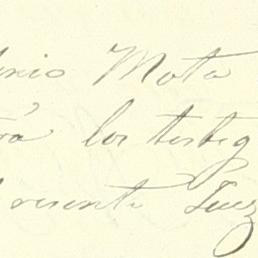 nio Mota
rá los testig
resente Juez